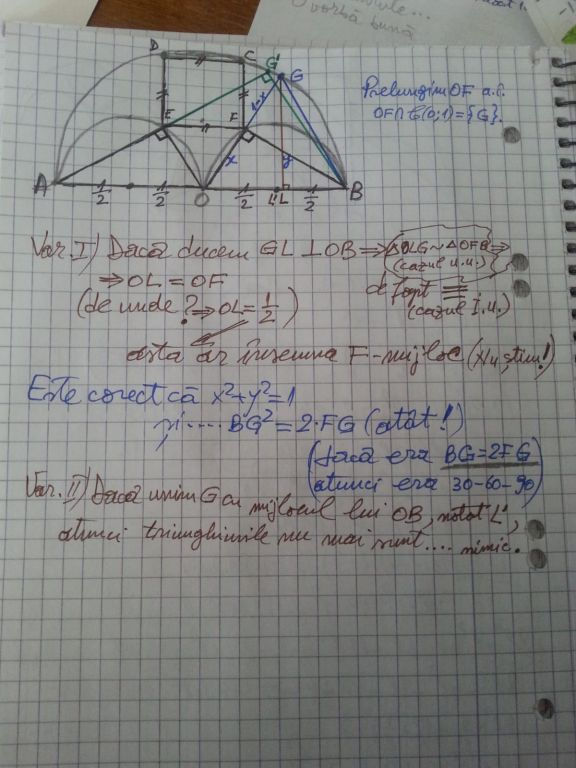 O vorbă bună
D
C
G'
G
E
F
1-x
x
y
A
1/2
1/2
O
1/2
L'
L
1/2
B
Prelungim OF a.î.
OF∩C(0;1)={G}.
Var. I) Dacă ducem GL⊥OB ⇒ ΔOLG~ΔOFB ⇒
(cazul u.u.)
⇒ OL = OF
de fapt ≡
(de unde? ⇒ OL = 1/2)
(cazul I.u.)
asta ar însemna F-mijloc (Nu știm!)
Este corect că x²+y²=1
și .... BG²=2·FG (atât!)
(dacă era BG=2FG
atunci era 30-60-90)
Var. II) Dacă unim G cu mijlocul lui OB, notat L',
atunci triunghiurile nu mai sunt.... nimic.